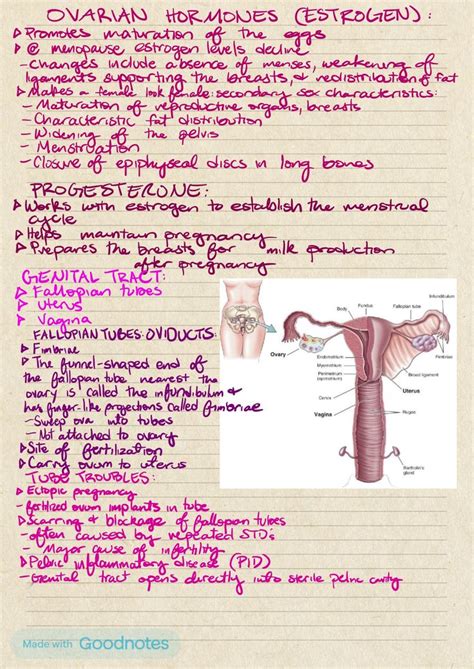 OVARIAN HORMONES (ESTROGEN):
▷ Promotes maturation of the eggs
▷ @ menopause estrogen levels decline
- Changes include absence of menses, weakening of
ligaments supporting the breasts, & redistribution of fat
▷ Makes a female look female: secondary sex characteristics:
- Maturation of reproductive organs, breasts
- Characteristic fat distribution
- Widening of the pelvis
- Menstruation
- Closure of epiphyseal discs in long bones
PROGESTERONE:
▷ Works with estrogen to establish the menstrual
cycle
▷ Helps maintain pregnancy
▷ Prepares the breasts for milk production
after pregnancy
GENITAL TRACT:
▷ Fallopian tubes
▷ Uterus
▷ Vagina
FALLOPIAN TUBES: OVIDUCTS:
▷ Fimbriae
▷ The funnel-shaped end of
the fallopian tube nearest the
ovary is called the infundibulum &
has finger-like projections called fimbriae
- Sweep ova into tubes
- Not attached to ovary
▷ Site of fertilization
▷ Carry ovum to uterus
TUBE TROUBLES:
▷ Ectopic pregnancy
- fertilized ovum implants in tube
▷ Scarring & blockage of fallopian tubes
- often caused by repeated STDs
- Major cause of infertility
▷ Pelvic inflammatory disease (PID)
- Genital tract opens directly into sterile pelvic cavity
Infundibulum
Fundus
Body
Fallopian tube
Ovary
Endometrium
Myometrium
Perimetrium
(epimetrium)
Fimbriae
Broad ligament
Uterus
Cervix
Vagina
Rugae
Bartholin's
gland
Made with Goodnotes